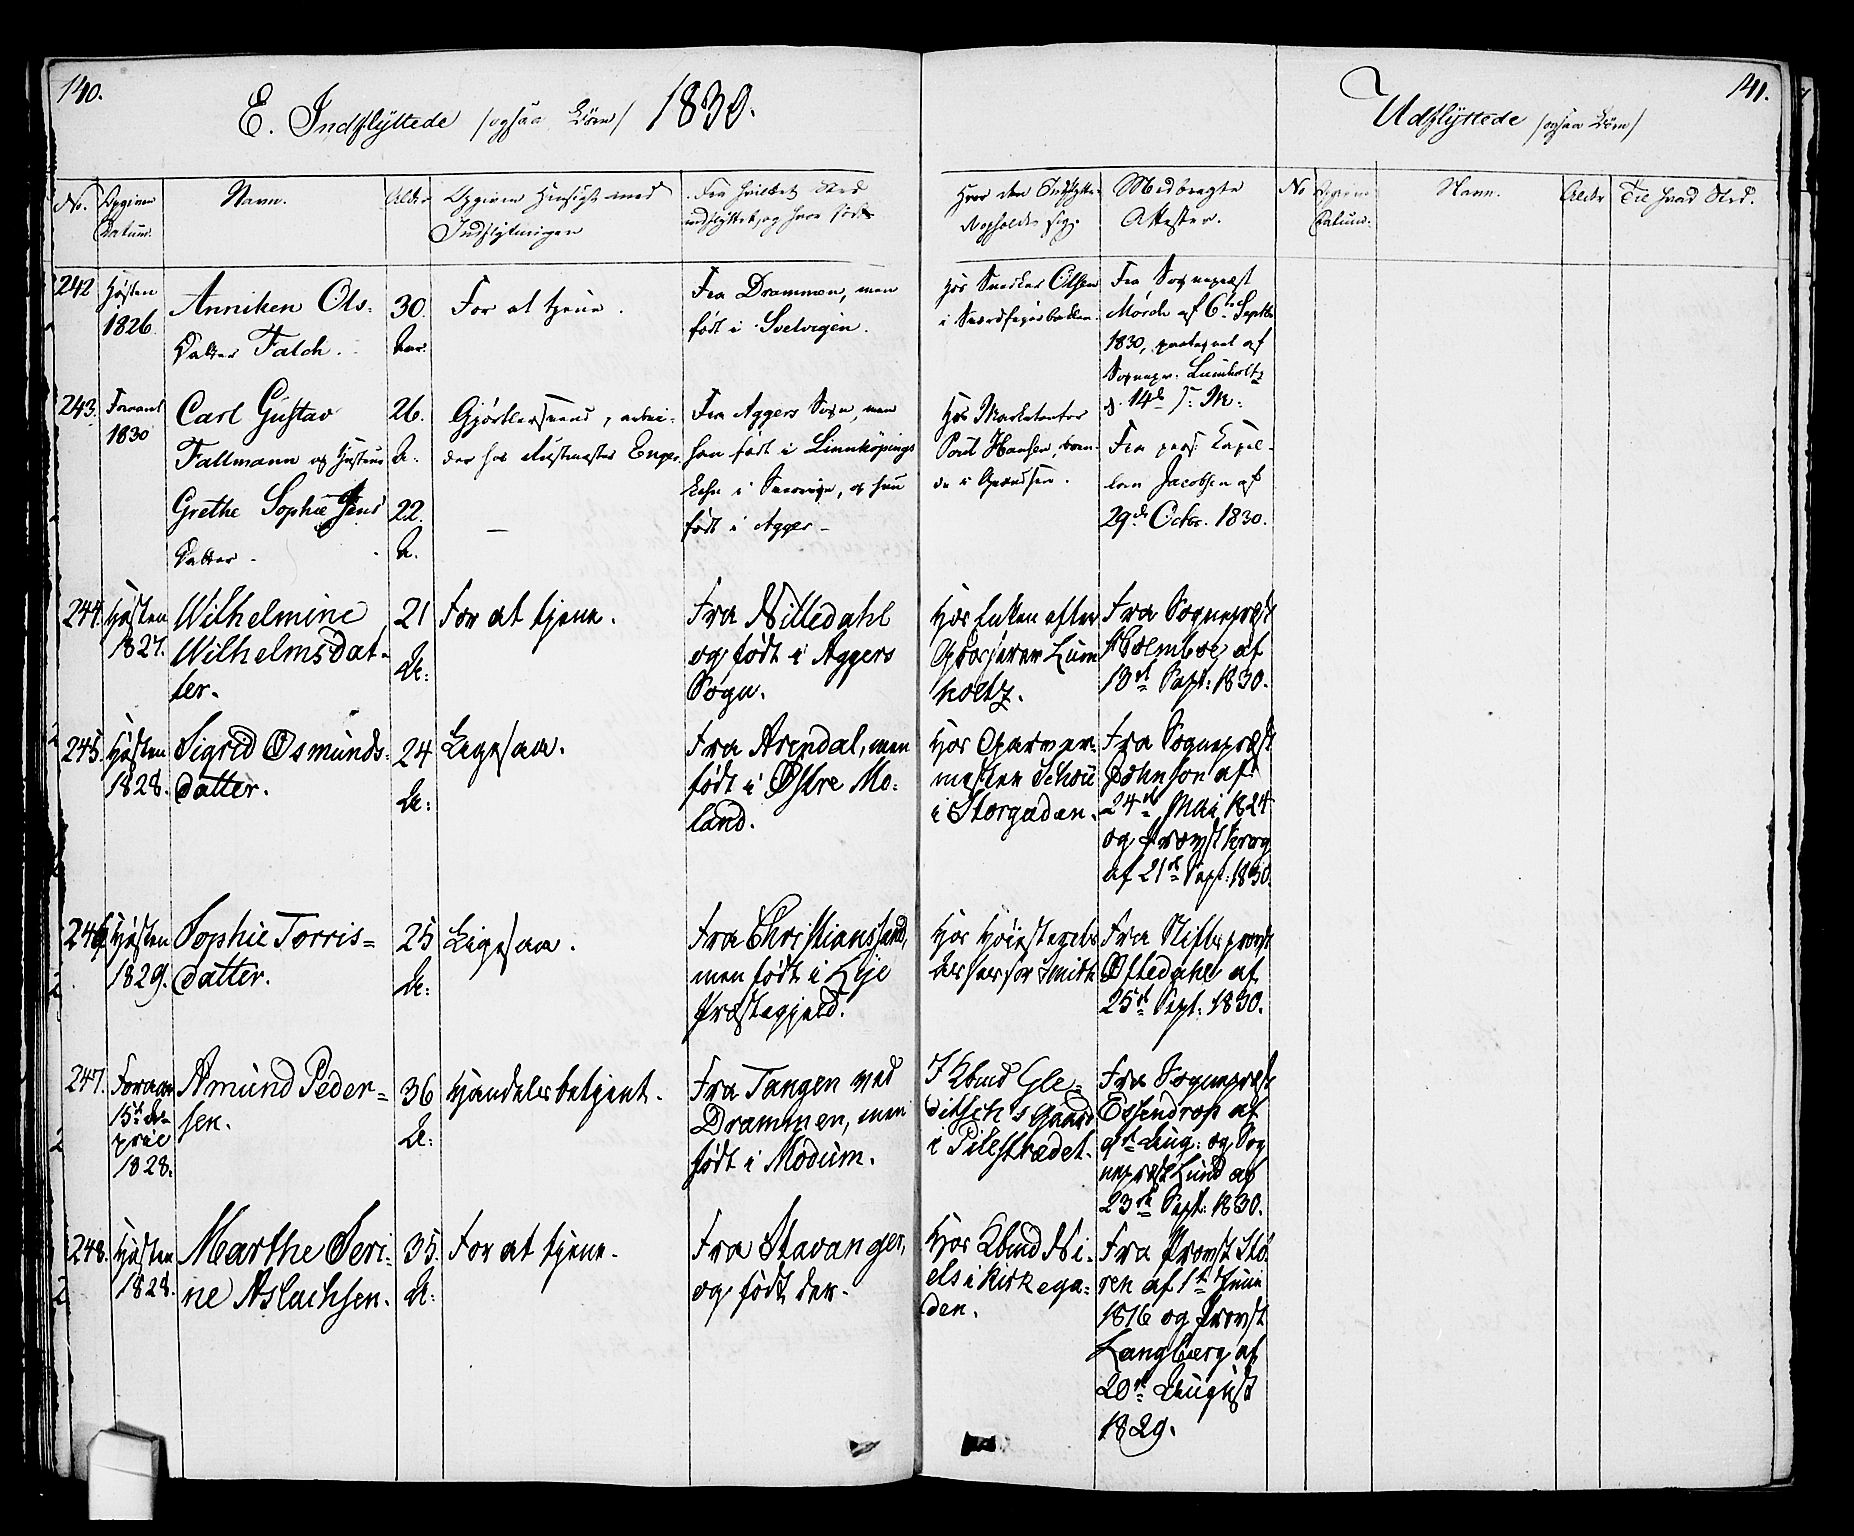 140.
E. Indflyttede /ogsaa Börn/ 1830.
No. Opgiven Datum. Navn. Alder Opgiven Hensigt med Indflytningen Fra hvilket Sted indflyttet, og hvor født
Hvor den Indflyttede opholder sig. Medbragte Attester.
242 Høsten 1826.
Anniken Ols-
Datter Falch.
30. Aar.
For at tjene.
Fra Drammen, men
født i Svelvigen.
Hos Snedker Olsen
i
Fra Sognepræst
Mørch af 6te Septbr
1830, paategnet af
Sognepr. Lumholtz
d. 14de s: M:
243. 1830
Carl Gustav
Fallmann og Hustrue
Grethe Sophie Jens
Datter -
26. A.
22. A.
Gjørtlersvend, arbei-
der hos Enger.
—
Fra Aggers Sogn, men
han født i Linnköpings
Lehn i Sverrige, og hun
født i Agger -
Hos Marketenter
Poul Hansen, boen-
de i Grændsen.
Fra pers: Capel-
lan Jacobsen af
29de Octbr. 1830.
244. Høsten 1827.
Wilhelmine
Wilhelmsdat-
ter.
21 A:
For at tjene.
Fra Nittedahl
og født i Aggers
Sogn.
Hos Enken efter
Lum
holtz.
Fra Sognepræst
Holmboe af
13de Sept: 1830.
245. Høsten 1828.
Sigrid Osmunds-
datter.
24 A:
Ligesaa.
Fra Arendal, men
født i Østre Mo-
land.
Hos Garver-
mester Schou
i Storgaden.
Fra Sognepræst
Johnson af
24de Mai 1824
og Provst Krog
af 21de Sept: 1830.
246. Høsten 1829.
Sophie Torris-
datter.
25 A:
Ligesaa.
Fra Christianssand,
men født i Lÿe
Præstegjeld.
Hos Höiesterets
Assessor Smith
Fra Stiftsprovst
Oftedahl af
25de Sept: 1830.
247. Foraar
15de A-
pril
1828.
Amund Peder-
sen.
36 A:
Handelsbetjent.
Fra Tangen ved
Drammen, men
født i Modum.
I Kbmd Gle-
ditsch's Gaard
i Pilestrædet.
Fra Sognepræst
Essendrop af
9de Aug: og Sog
nepræst Lund af
23de Sept: 1830.
248. Høsten 1828.
Marthe Seri-
ne Aslachsen.
35. A:
For at tjene.
Fra Stavanger,
og født der.
Hos Kbmd Ni-
els i Kirkega-
den.
Fra Provst Stø-
ren af 1ste Juni
1816 og Provst
Langberg af
20de August
1829.
141.
Udflyttede /ogsaa Börn/
No Opgiven Datum. Navn. Alder Til hvad Sted.